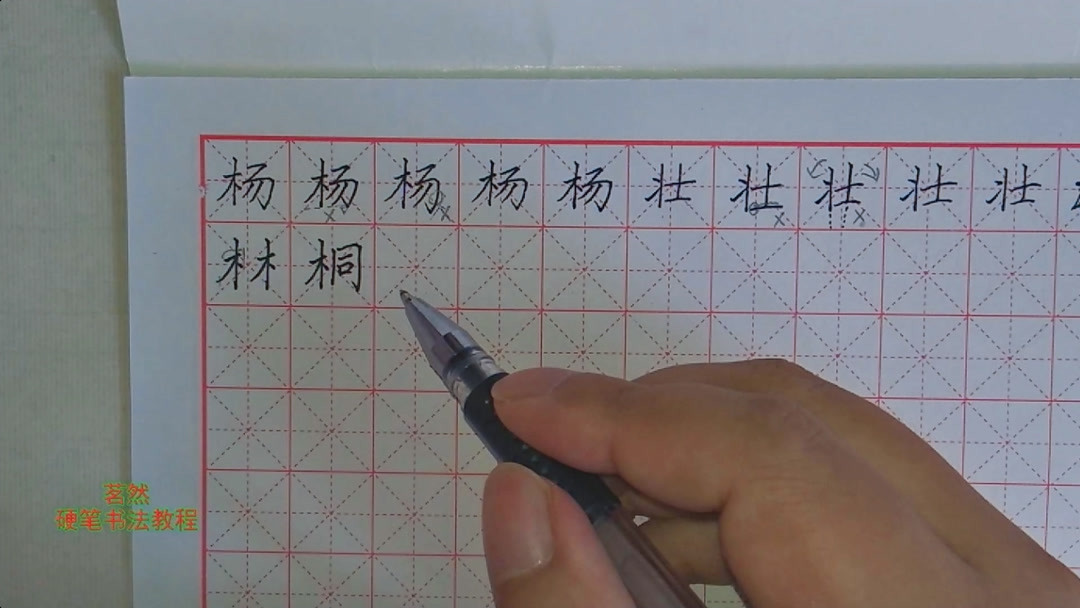 杨杨杨杨杨壮壮壮壮壮
林桐
茗然
硬笔书法教程